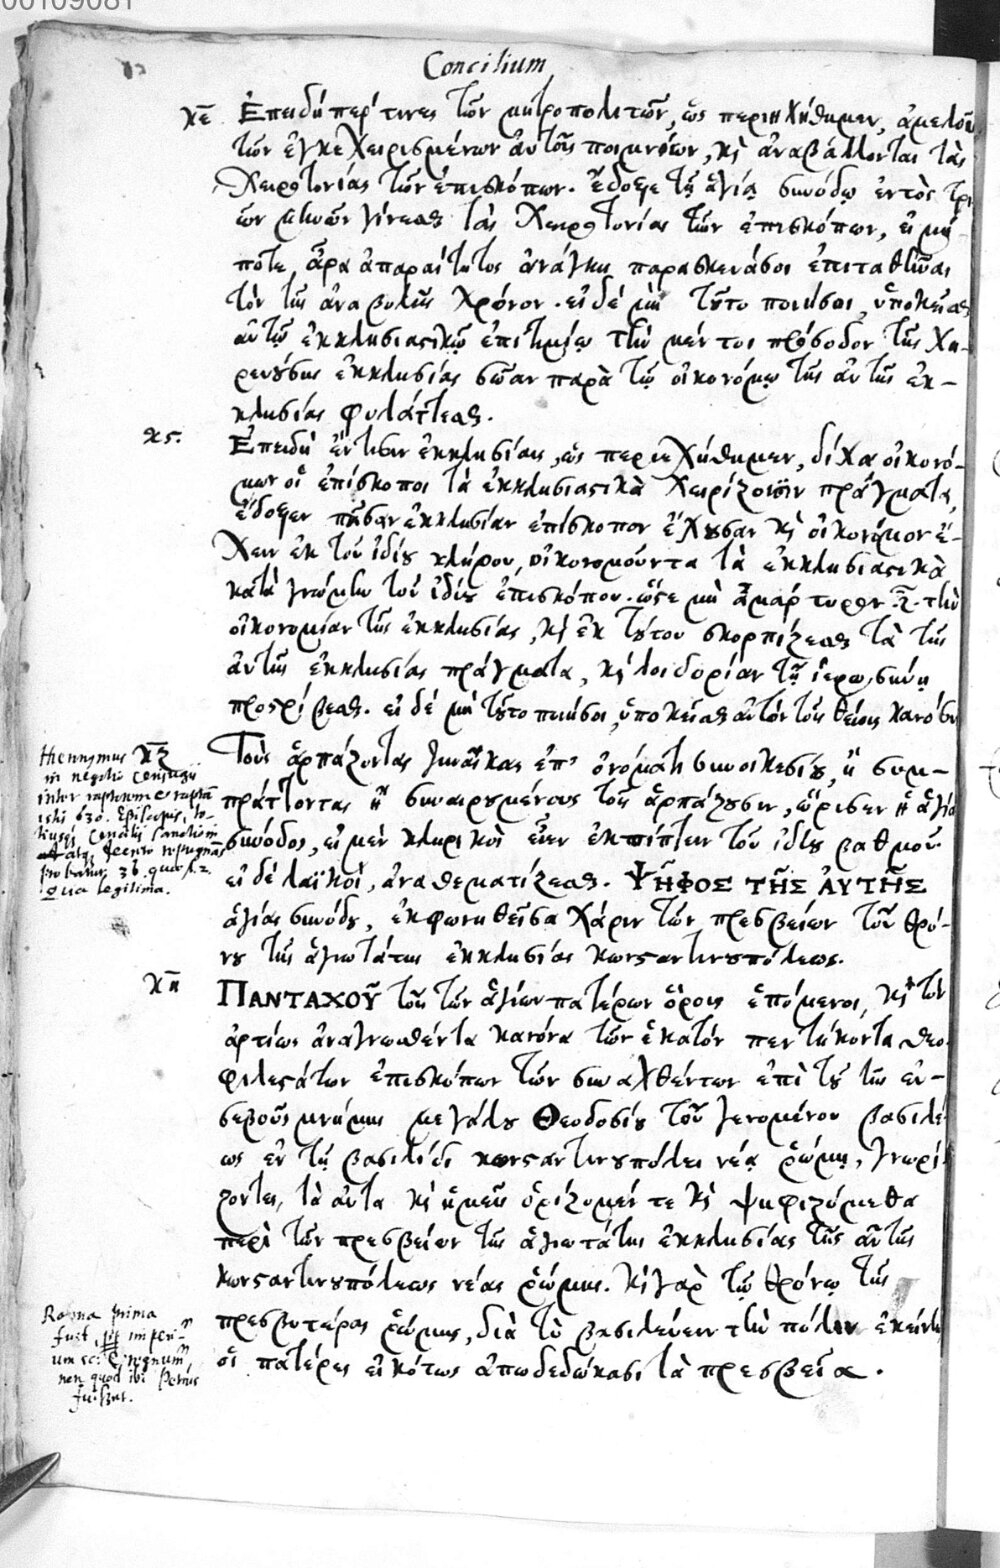 00109081
12
Concilium
κε Ἐπειδήπερ τινες τῶν μητροπολιτῶν, ὡς περιηχήθημεν, ἀμελοῦσι
τῶν ἐγκεχειρισμένων αὐτοῖς ποιμνίων, κὶ ἀναβάλλονται τὰς
χειροτονίας τῶν ἐπισκόπων. ἔδοξε τῇ ἁγίᾳ συνόδῳ ἐντὸς τρι
ῶν μηνῶν γίνεσθαι τὰς χειροτονίας τῶν ἐπισκόπων, εἰ μή-
ποτε ἄρα ἀπαραίτητος ἀνάγκη παρασκευάσοι ἐπιταθῆναι
τὸν τῆς ἀναβολῆς χρόνον. εἰ δέ μὴ τοῦτο ποιήσοι, ὑποκεῖσθαι
αὐτῷ ἐκκλησιαστικῷ ἐπιτιμίῳ τὴν μέν τοι πρόσοδον τῆς χη-
ρευούσης ἐκκλησίας σῶαν παρὰ τῷ οἰκονόμῳ τῆς αὐτῆς ἐκ-
κλησίας φυλάττεσθαι.
κς. Ἐπειδὴ ἔν τισιν ἐκκλησίαις, ὡς περιεχήθημεν, δίχα οἰκονό-
μων οἱ ἐπίσκοποι τὰ ἐκκλησιαστικὰ χειρίζουσιν πράγματα,
ἔδοξεν πᾶσαν ἐκκλησίαν ἐπίσκοπον ἔχουσαν κὶ οἰκονόμον ἔ-
χειν ἐκ τοῦ ἰδίου κλήρου, οἰκονομοῦντα τὰ ἐκκλησιαστικὰ
κατὰ γνώμην τοῦ ἰδίου ἐπισκόπου. ὥστε μὴ ἀμάρτυρον εἶναι τὴν
οἰκονομίαν τῆς ἐκκλησίας, κὶ ἐκ τούτου σκορπίζεσθαι τὰ τῆς
αὐτῆς ἐκκλησίας πράγματα, κὶ λοιδορίαν τῇ ἱερωσύνῃ
προστρίβεσθαι. εἰ δέ μὴ τοῦτο ποιήσοι, ὑποκεῖσθαι αὐτὸν τοῖς θείοις κανόσιν
κζ Τοὺς ἁρπάζοντας γυναῖκας ἐπ' ὀνόματι συνοικεσίου, ἢ συμ-
πράττοντας ἢ συναιρουμένους τοῖς ἁρπάζουσιν, ὥρισεν ἡ ἁγία
σύνοδος, εἰ μέν κληρικοὶ εἶεν ἐκπίπτειν τοῦ ἰδίου βαθμοῦ.
εἰ δέ λαϊκοὶ, ἀναθεματίζεσθαι. ΨΗΦΟΣ ΤΗΣ ΑΥΤΗΣ
ἁγίας συνόδου, ἐκφωνηθεῖσα χάριν τῶν πρεσβείων τοῦ θρό-
νου τῆς ἁγιωτάτης ἐκκλησίας κωνσταντινουπόλεως.
κη ΠΑΝΤΑΧΟΥ τοῖς τῶν ἁγίων πατέρων ὅροις ἑπόμενοι, κὶ τὸν
ἀρτίως ἀναγνωσθέντα κανόνα τῶν ἑκατόν πεντήκοντα θεο
φιλεστάτων ἐπισκόπων τῶν συναχθέντων ἐπὶ τοῦ τῆς εὐ-
σεβοῦς μνήμης μεγάλου Θεοδοσίου τοῦ γενομένου βασιλέ
ως ἐν τῇ βασιλίδι κωνσταντινουπόλει νέᾳ ῥώμῃ, γνωρί
ζοντες, τὰ αὐτα κὶ ἡμεῖς ὁρίζομέν τε κὶ ψηφιζόμεθα
περὶ τῶν πρεσβείων τῆς ἁγιωτάτης ἐκκλησίας τῆς αὐτῆς
κωνσταντινουπόλεως νέας ῥώμης. κὶ γὰρ τῷ θρόνῳ τῆς
πρεσβυτέρας ῥώμης, διὰ τὸ βασιλεύειν τὴν πόλιν ἐκείνην
οἱ πατέρες εἰκότως ἀποδεδώκασι τὰ πρεσβεῖα.
Hieronymus
in negotio Conjugij
inter raptorem & raptā
isti 630. Episcopis,
Concilij
probatur 36. quaest. 2.
Qua legitima.
Roma prima
fuit imperi-
um sc: & regnum,
non quod ibi Petrus
fuisset.